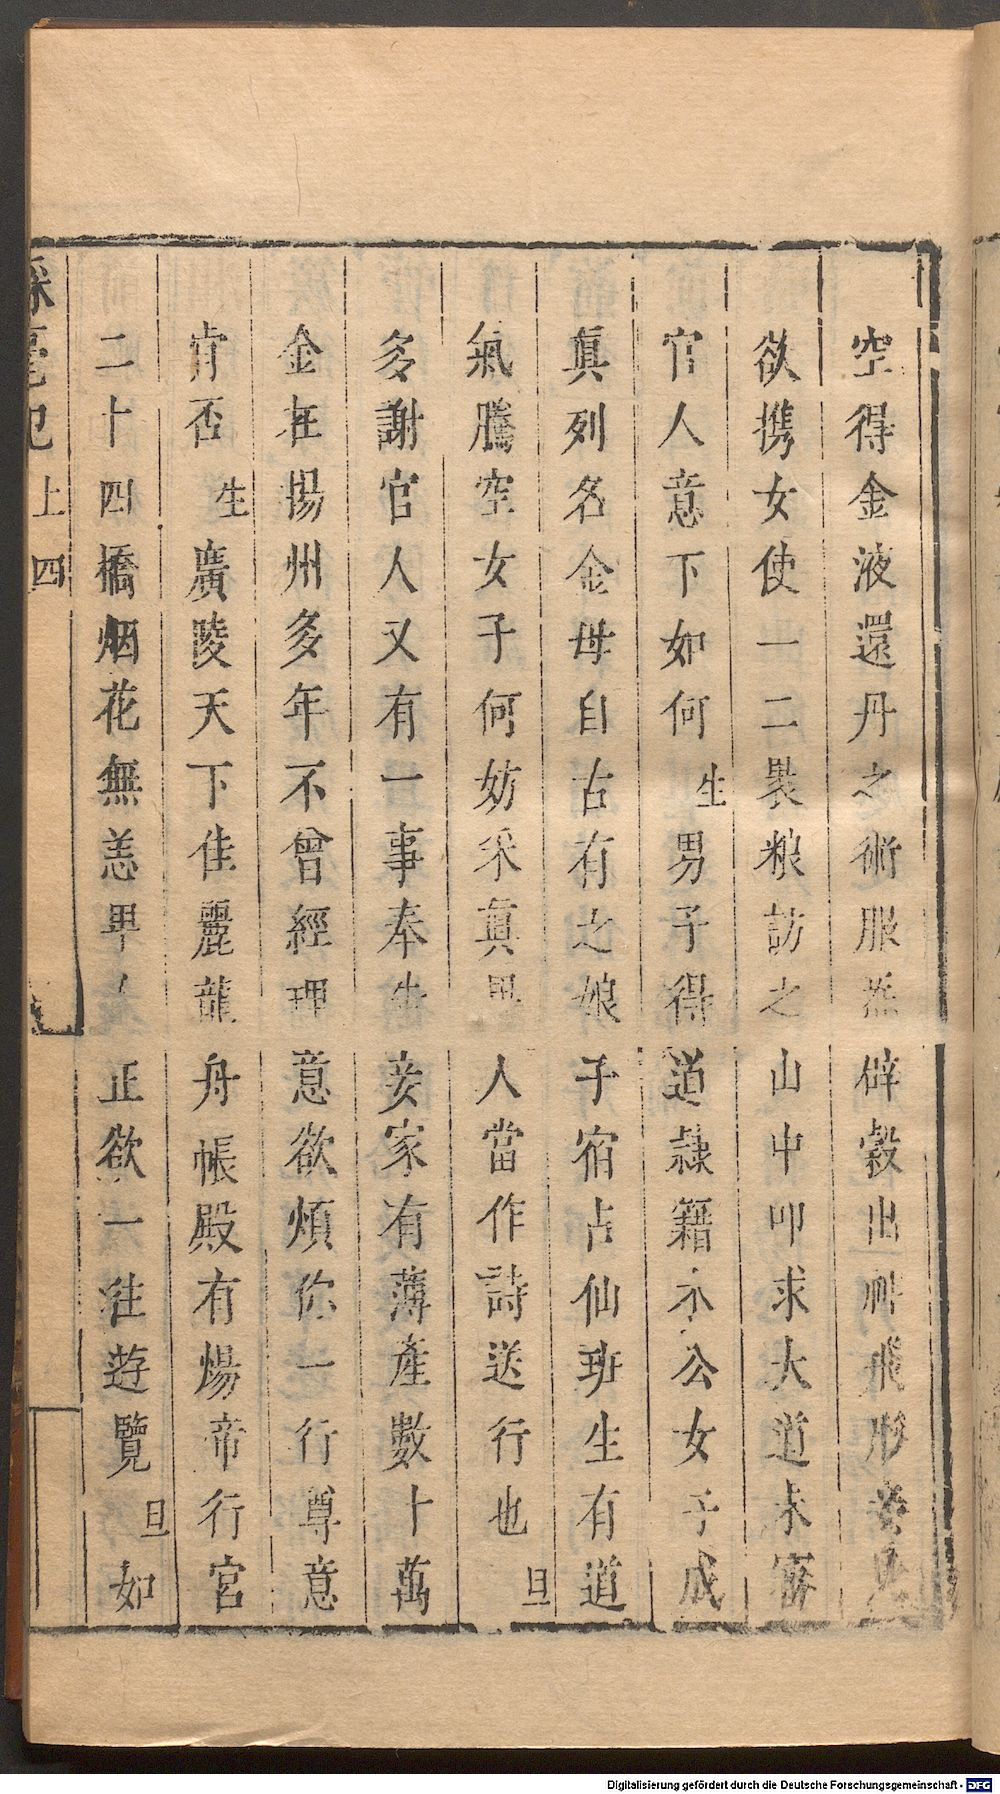 空得金液還丹之術服炁辟穀出神飛形妾
欲携女使一二裝粮訪之山中叩求大道未審
官人意下如何生男子得道隷籍木公女子成
眞列名金母自古有之娘子宿占仙班生有道
氣騰空女子何妨采眞畢人當作詩送行也旦
多謝官人又有一事奉告妾家有薄產數十萬
金在揚州多年不曾經理意欲煩你一行尊意
肯否生廣陵天下佳麗龍舟帳殿有煬帝行宮
二十四橋烟花無恙畢人正欲一往遊覽旦如
上四
Digitalisierung gefördert durch die Deutsche Forschungsgemeinschaft - DFG